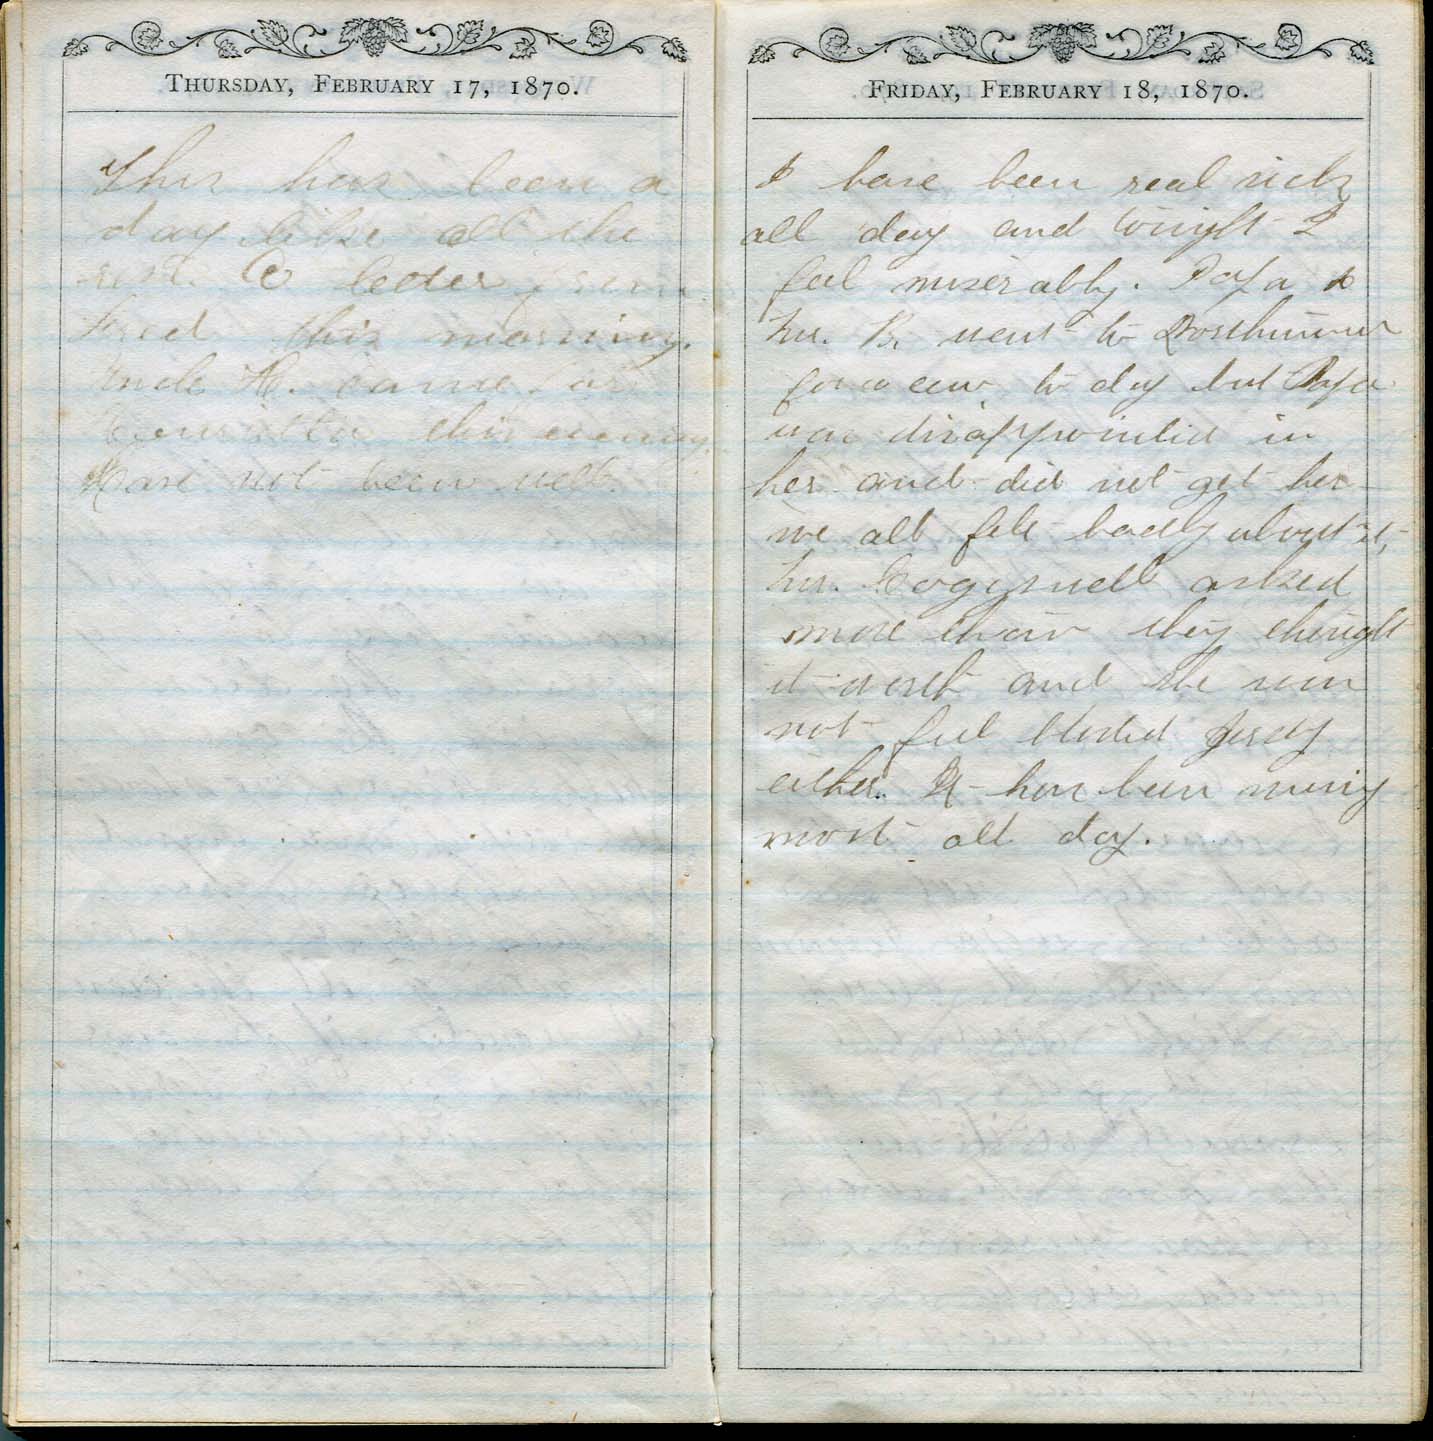 THURSDAY, FEBRUARY 17, 1870.
This has been a
day like all the
rest. A letter from
Fred this morning.
Uncle H. came for
Henrietta this evening
Have not been well.
FRIDAY, FEBRUARY 18, 1870.
I have been real sick
all day and tonight I
feel miserably. Papa &
Mr. B. went to
for a cow to day but Papa
was disappointed in
her and did not get her
we all felt badly about it,
Mr. Cogswell asked
more than they thought
it worth and she was
not full blooded Jersey
either. It has been rainy
most all day.